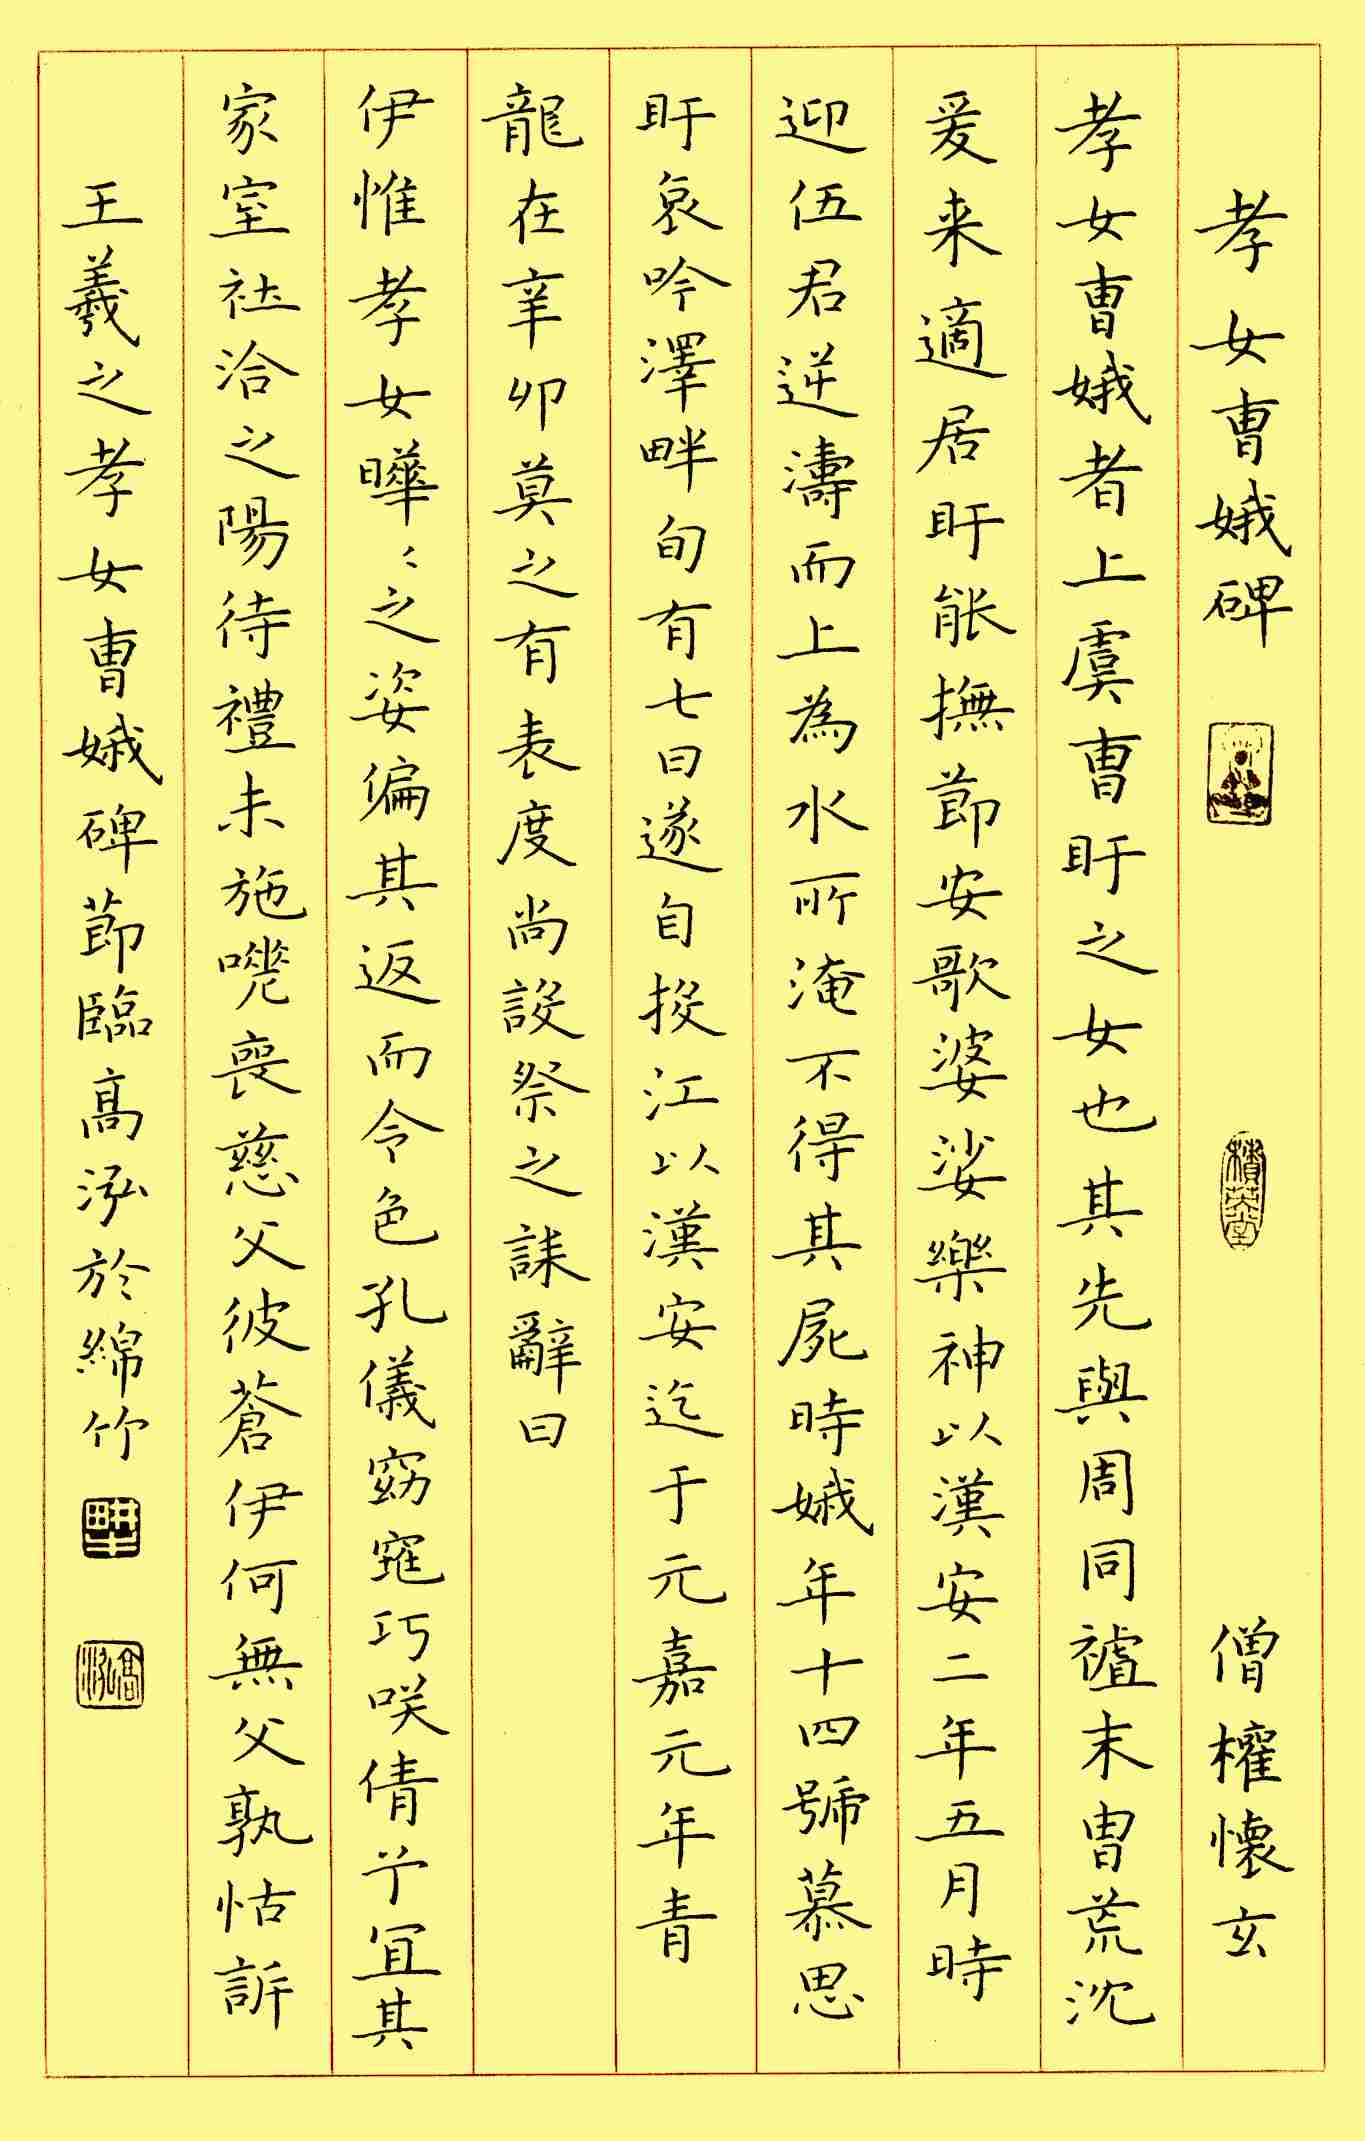 孝女曺娥碑 積英堂 僧權懷玄
孝女曺娥者上虞曺盱之女也其先與周同禇末胄荒沈
爰来適居盱能撫節安歌婆娑樂神以漢安二年五月時
迎伍君逆濤而上為水所淹不得其屍時娥年十四號慕思
盱哀吟澤畔旬有七日遂自投江以漢安迄于元嘉元年青
龍在辛卯莫之有表度尚設祭之誄辭曰
伊惟孝女曄〻之姿偏其返而令色孔儀窈窕巧咲倩兮宜其
家室社洽之陽待禮未施嘵喪慈父彼蒼伊何無父孰怙訴
王羲之孝女曺娥碑節臨高泓於綿竹 耕十 高泓